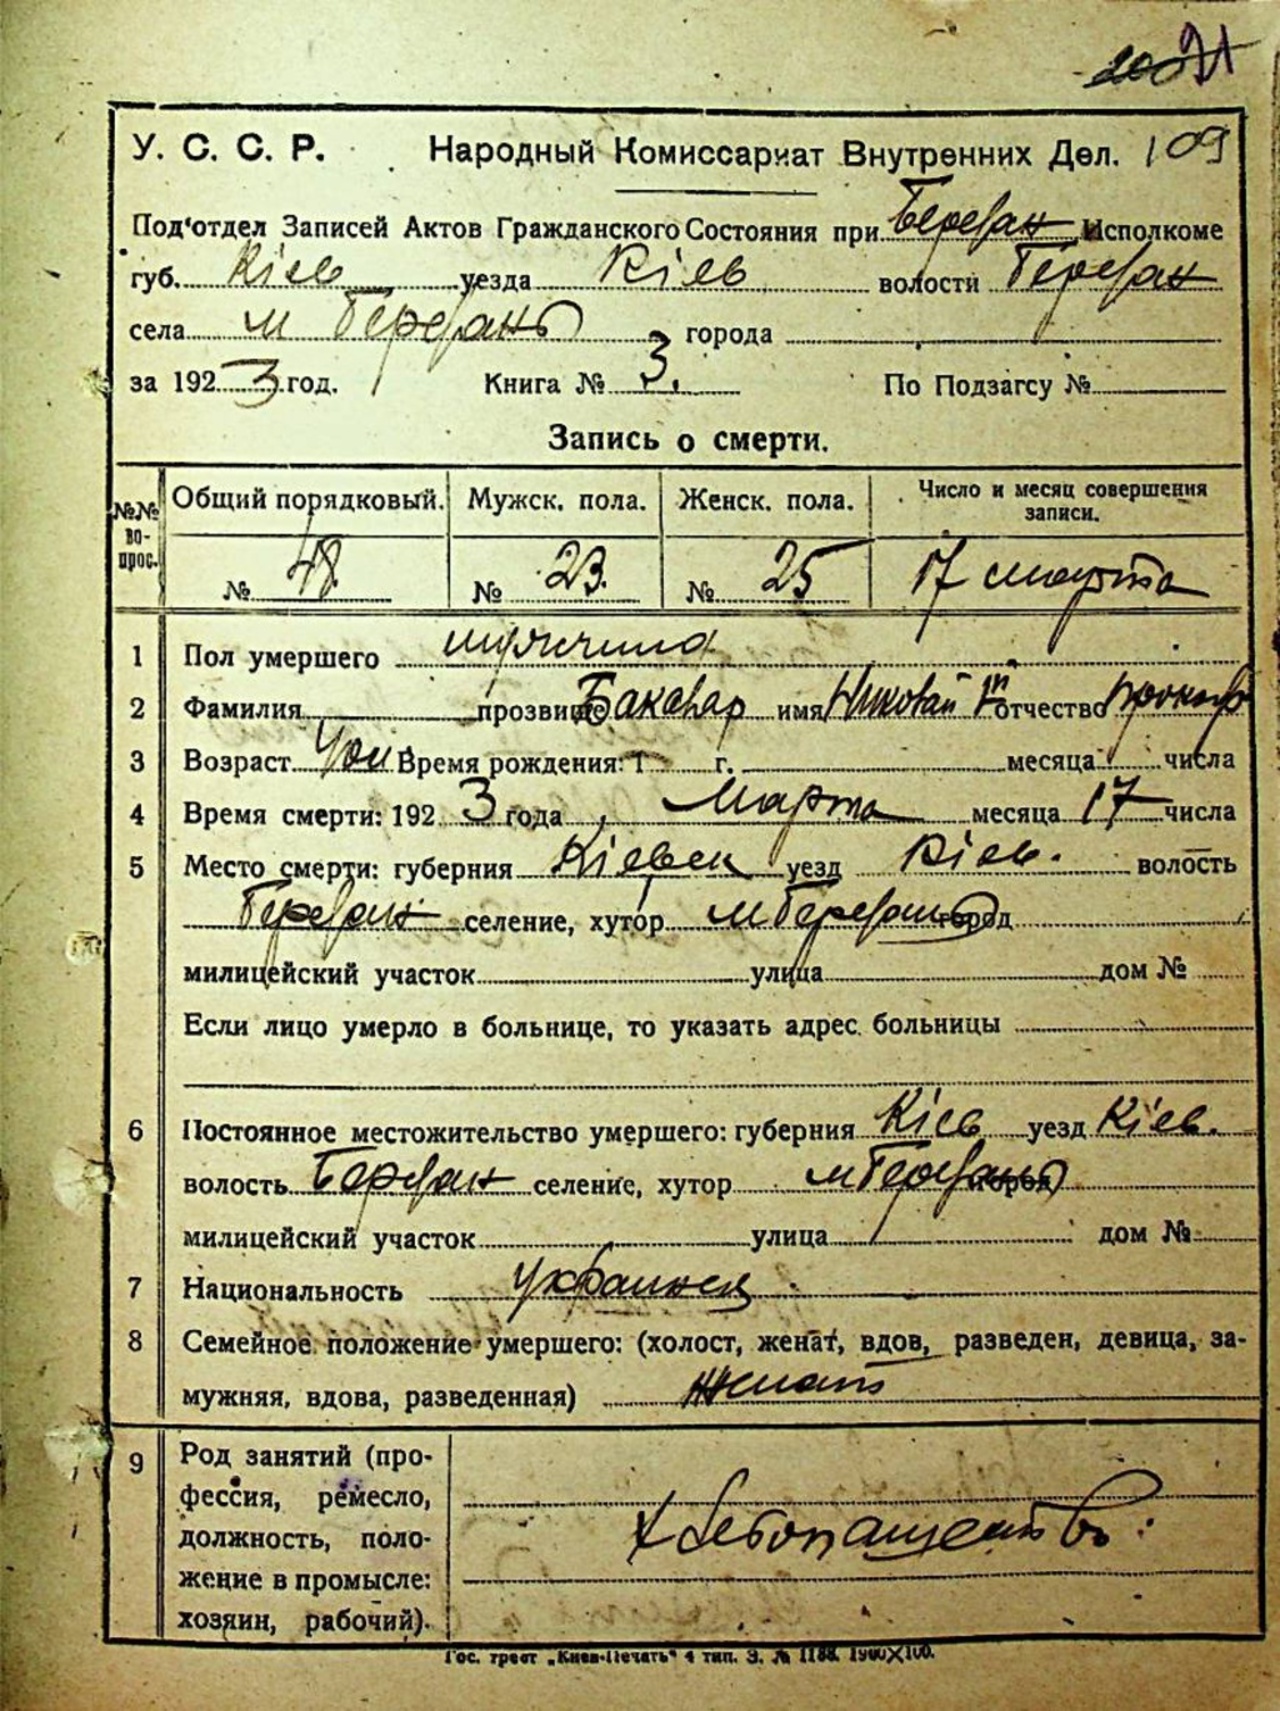 71
У. С. С. Р. Народный Комиссариат Внутренних Дел. 109
Под'отдел Записей Актов Гражданского Состояния при Березан Исполкоме
губ. Кіев уезда Кіев волости Березан
села м Березань города
за 1923 год. Книга № 3. По Подзагсу №
Запись о смерти.
№№ вопрос. Общий порядковый. Мужск. пола. Женск. пола. Число и месяц совершения записи.
№ 48 № 23 № 25 17 марта
1 Пол умершего мужчина
2 Фамилия прозвище имя Николай отчество Прокоф
3 Возраст Время рождения: 1 г. месяца числа
4 Время смерти: 1923 года Марта месяца 17 числа
5 Место смерти: губерния Кіевск уезд Кіев. волость
Березан селение, хутор м Березань город
милицейский участок улица дом №
Если лицо умерло в больнице, то указать адрес больницы
6 Постоянное местожительство умершего: губерния Кіев уезд Кіев.
волость Березан селение, хутор м Березань город
милицейский участок улица дом №
7 Национальность Украинец
8 Семейное положение умершего: (холост, женат, вдов, разведен, девица, за-
мужняя, вдова, разведенная) женатъ
9 Род занятий (про-
фессия, ремесло,
должность, поло-
жение в промысле:
хозяин, рабочий).
Хлебопашество
Гос. трест „Киев-Печать" 4 тип. З. № 1188. 1900X100.